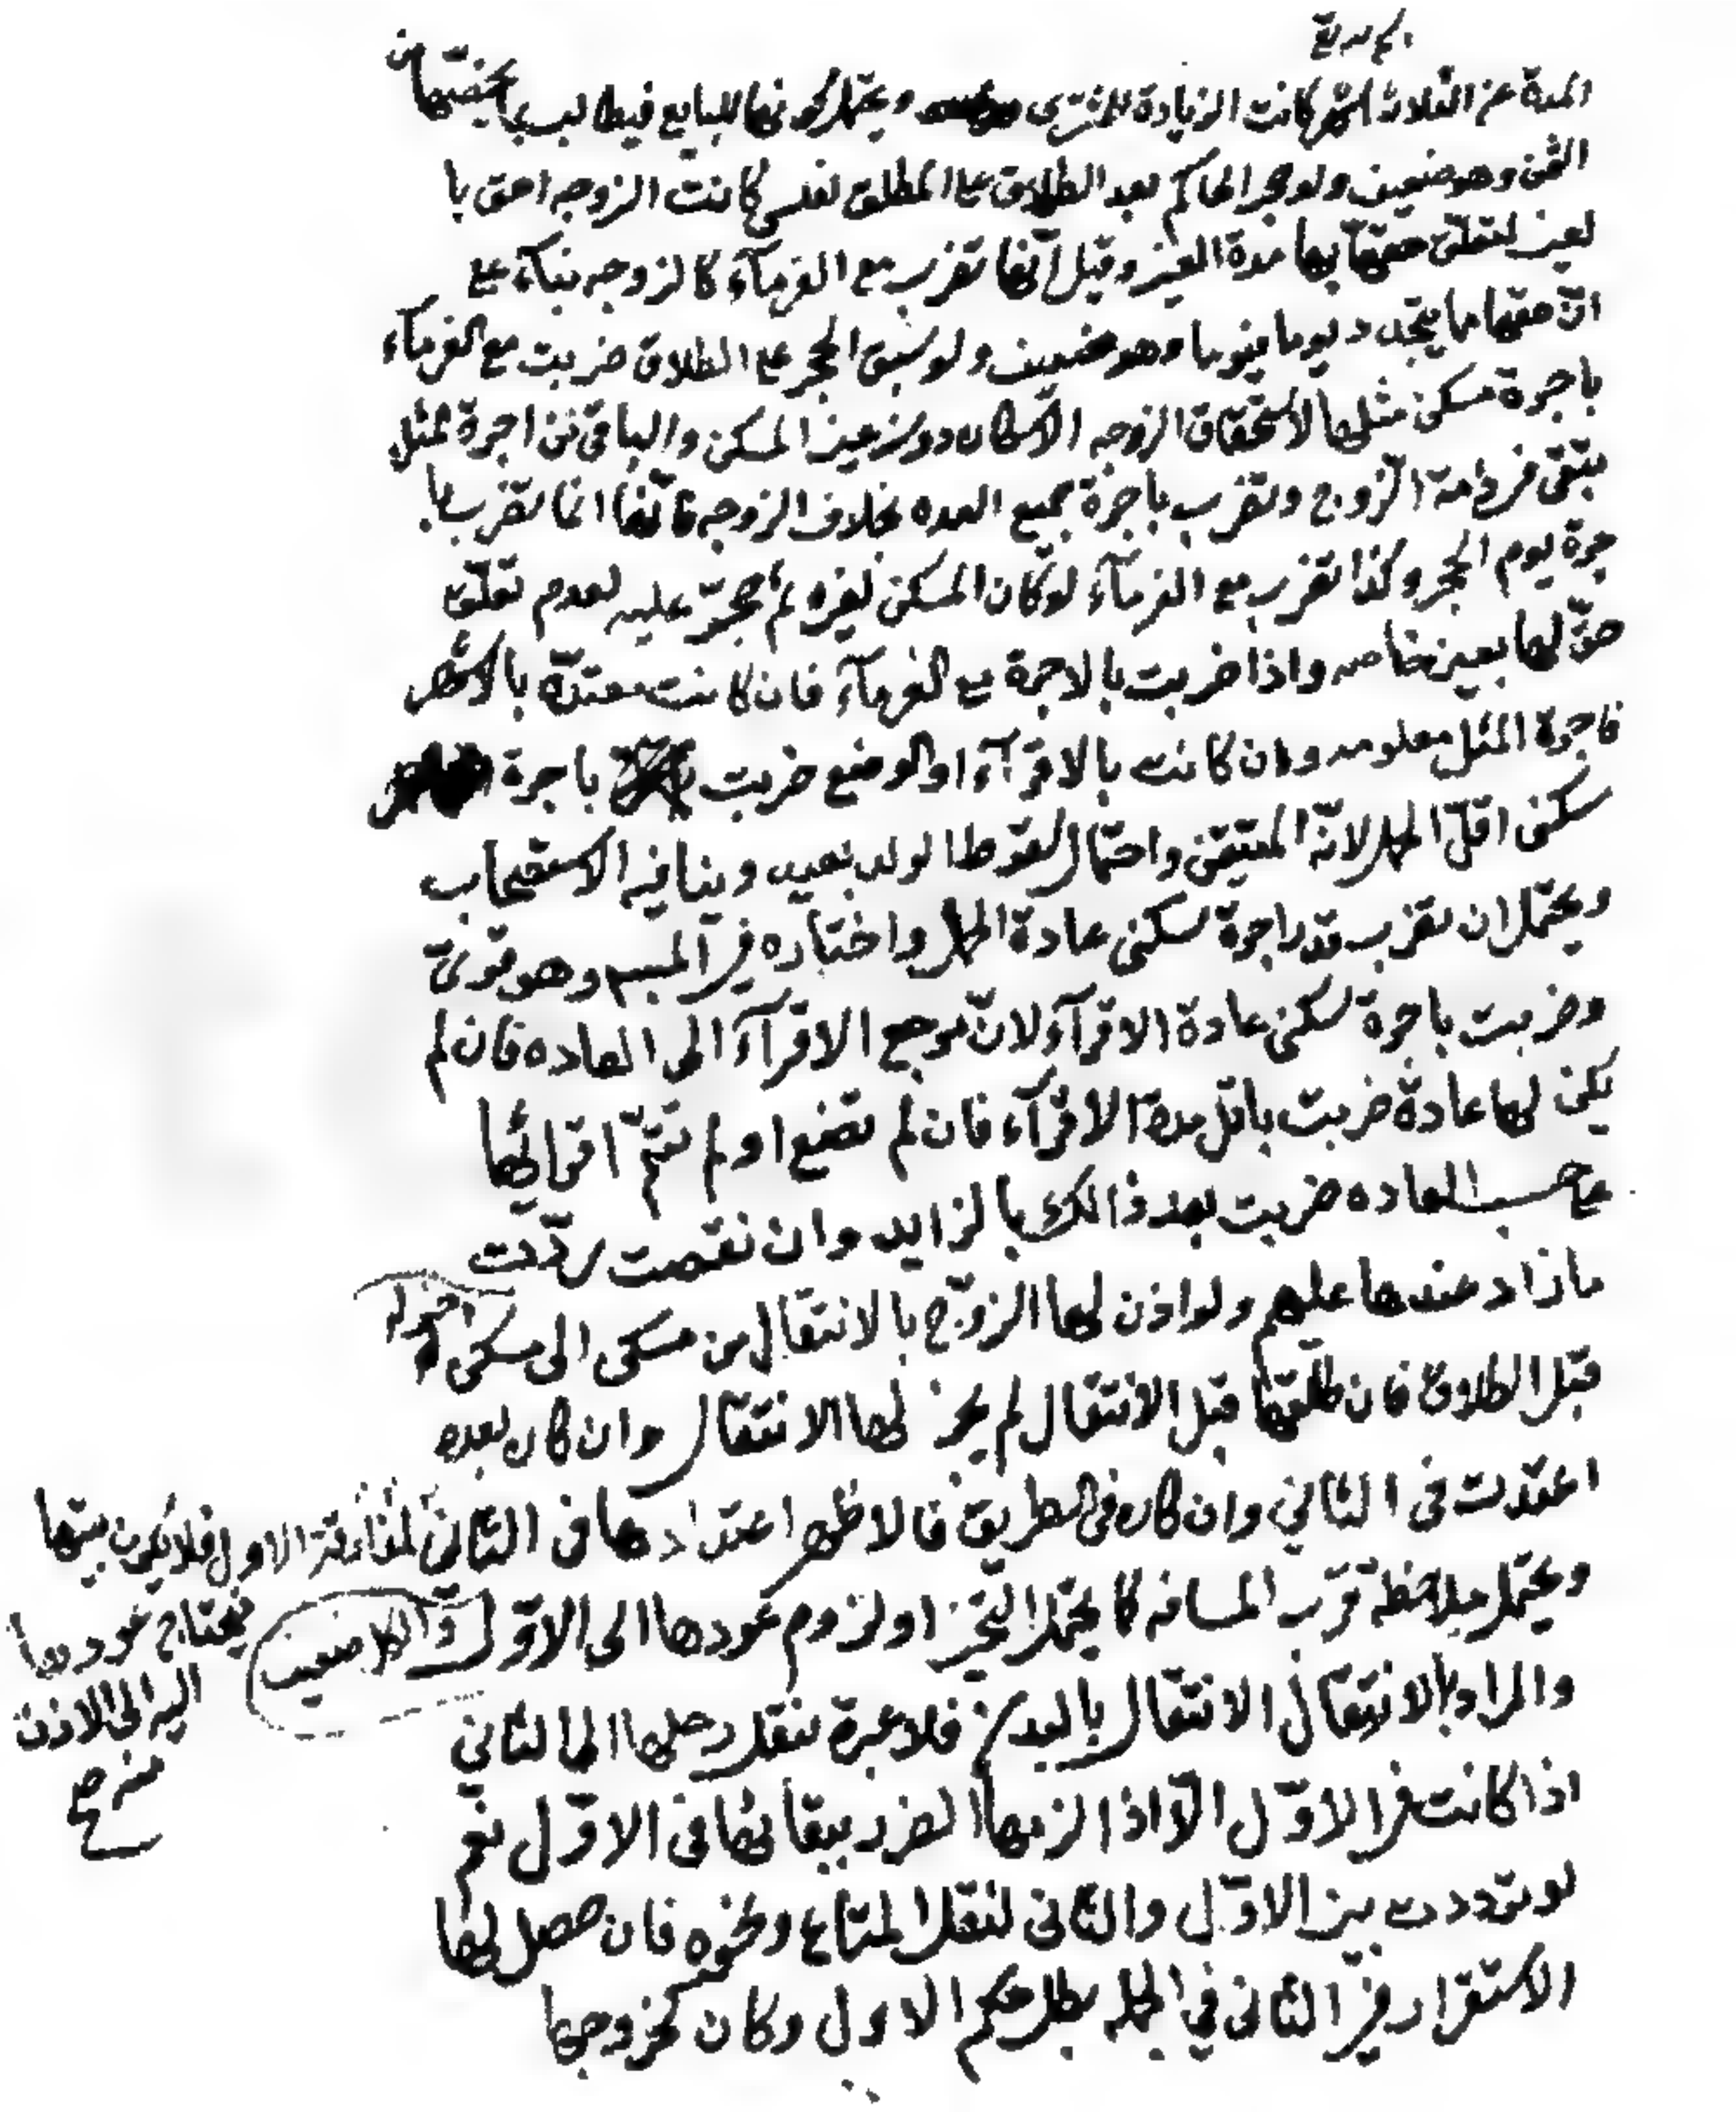 المدة عن الثلاثة اشهر كانت الزيادة للمشتري ويحتمل كونها للبايع فيطالب بما يخصّها من
الثمن وهو ضعيف ولو حجر الحاكم بعد الطلاق على المطلق لفلس كانت الزوجه احق با
لعين لتعلّق حقّها بها مدة العين وقيل انّها تضرب مع الغرمآء كالزوجه بنآء على
انّ حقها مما يتجدد يوما فيوما وهو ضعيف ولو سبق الحجر على الطلاق ضربت مع الغرمآء
باجرة مسكن مثلها لاستحقاق الزوجه الاسكان دون عين المسكن والباقي من اجرة المثل
يبقى في ذمة الزوج وتضرب باجرة جميع العده بخلاف الزوجه فانّها انما تضرب با
جرة يوم الحجر وكذا تضرب مع الغرمآء لو كان المسكن لغيره ثم حجّر عليه لعدم تعلّق
حقّ لها بعين خاصه واذا ضربت بالاجرة مع الغرمآء فان كانت معتدّة بالاشهر
فاجرة المثل معلومه وان كانت بالاقرآء او الوضع ضربت باجرة
سكنى اقلّ الحمل لانّه المتيقّن واحتمال سقوط الولد بعيد وينافيه الاستصحاب
ويحتمل ان تضرب بقدر اجرة سكنى عادة الحمل واختاره في المبسوط وهو قويّ
وضربت باجرة سكنى عادة الاقرآء لانّ مرجع الاقرآء الى العاده فان لم
يكن لها عادة ضربت باقل مدة الاقرآء فان لم تضع او لم تتمّ اقرائها
على حسب العاده ضربت بعد ذالك بالزايد وان نقصت ردّت
ما زاد عندها عليهم ولو اذن لها الزوج بالانتقال من مسكن الى مسكن اخر له
قبل الطلاق فان طلّقها قبل الانتقال لم يجز لها الانتقال وان كان بعده
اعتدّت في الثاني وان كان في الطريق فالاظهر اعتدادها في الثاني لمفارقة الاول فلا يكون بيتها
فيحتاج عودها
اليه الى الاذن
منه ص
ويحتمل ملاحظة قرب المسافه كما يحتمل التخيّر او لزوم عودها الى الاوّل والكل ضعيف
والمراد بالانتقال الانتقال بالبدن فلا عبرة بنقل رحلها الى الثاني
اذا كانت في الاوّل الّا اذا لزمها الضرر ببقائها في الاوّل نعم
لو تردّدت بين الاوّل والثاني لنقل المتاع ونحوه فان حصل لها
الاستقرار في الثاني في الجمله بطل حكم الاول وكان كخروجها